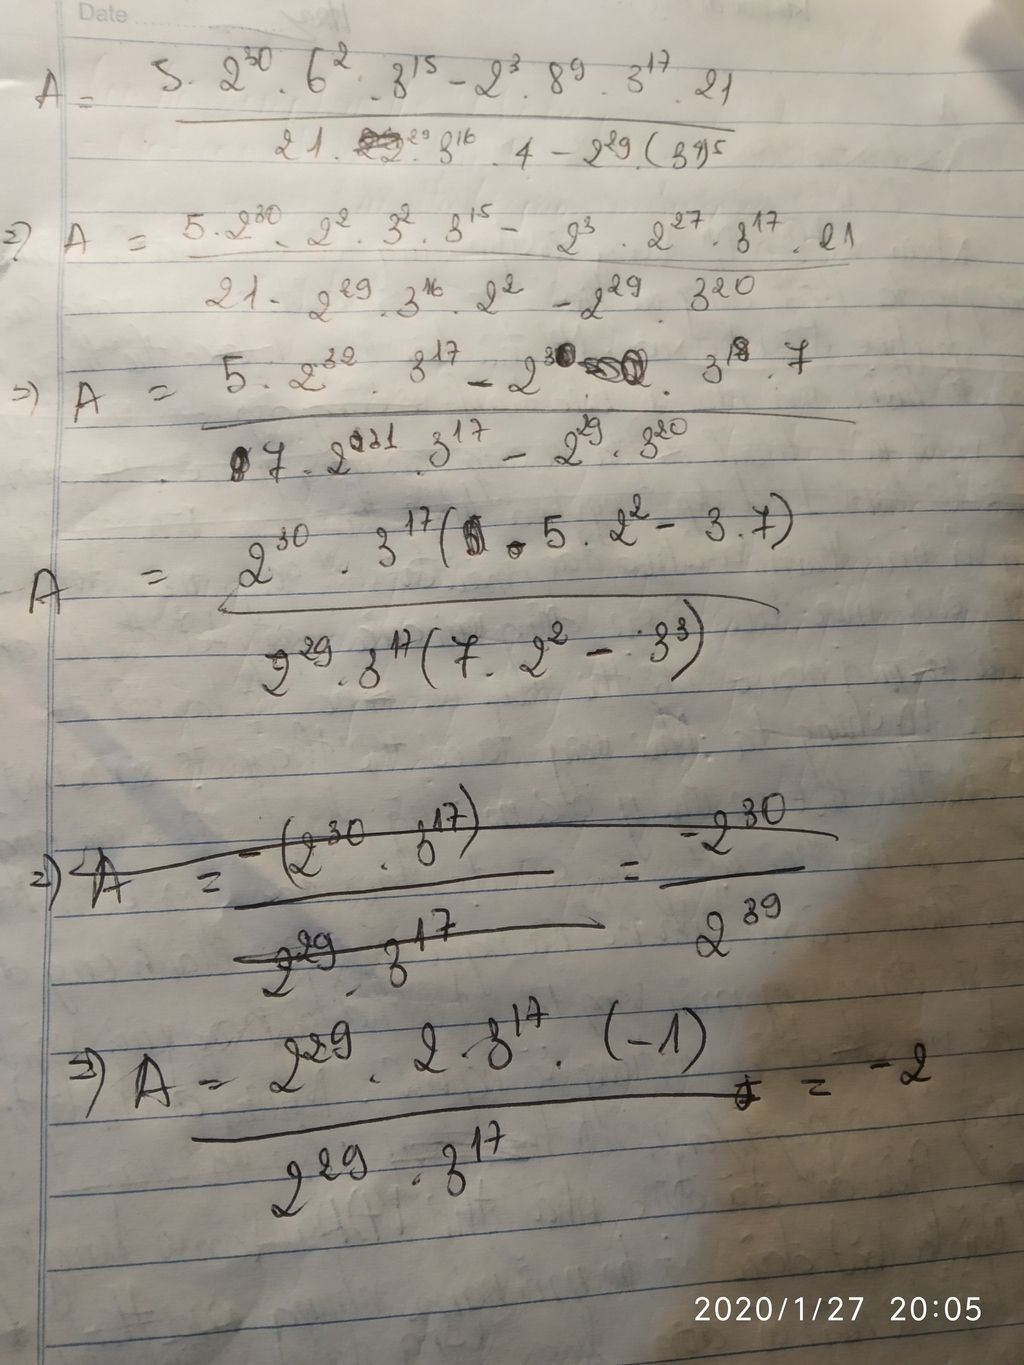 Date
A = 5 . 2^30 . 6^2 . 3^15 - 2^3 . 8^9 . 3^17 . 21
21 . 2^29 . 3^16 . 4 - 2^29 . (3^4)^5
=) A = 5 . 2^30 . 2^2 . 3^2 . 3^15 - 2^3 . 2^27 . 3^17 . 21
21 . 2^29 . 3^16 . 2^2 - 2^29 . 3^20
=) A = 5 . 2^32 . 3^17 - 2^30 . 3^18 . 7
7 . 2^31 . 3^17 - 2^29 . 3^20
A = 2^30 . 3^17 ( 5 . 2^2 - 3 . 7)
2^29 . 3^17 (7 . 2^2 - 3^3)
=) A = -(2^30 . 3^17) = -2^30
2^29 . 3^17 2^39
=) A = 2^29 . 2 . 3^17 . (-1) = -2
2^29 . 3^17
2020/1/27 20:05